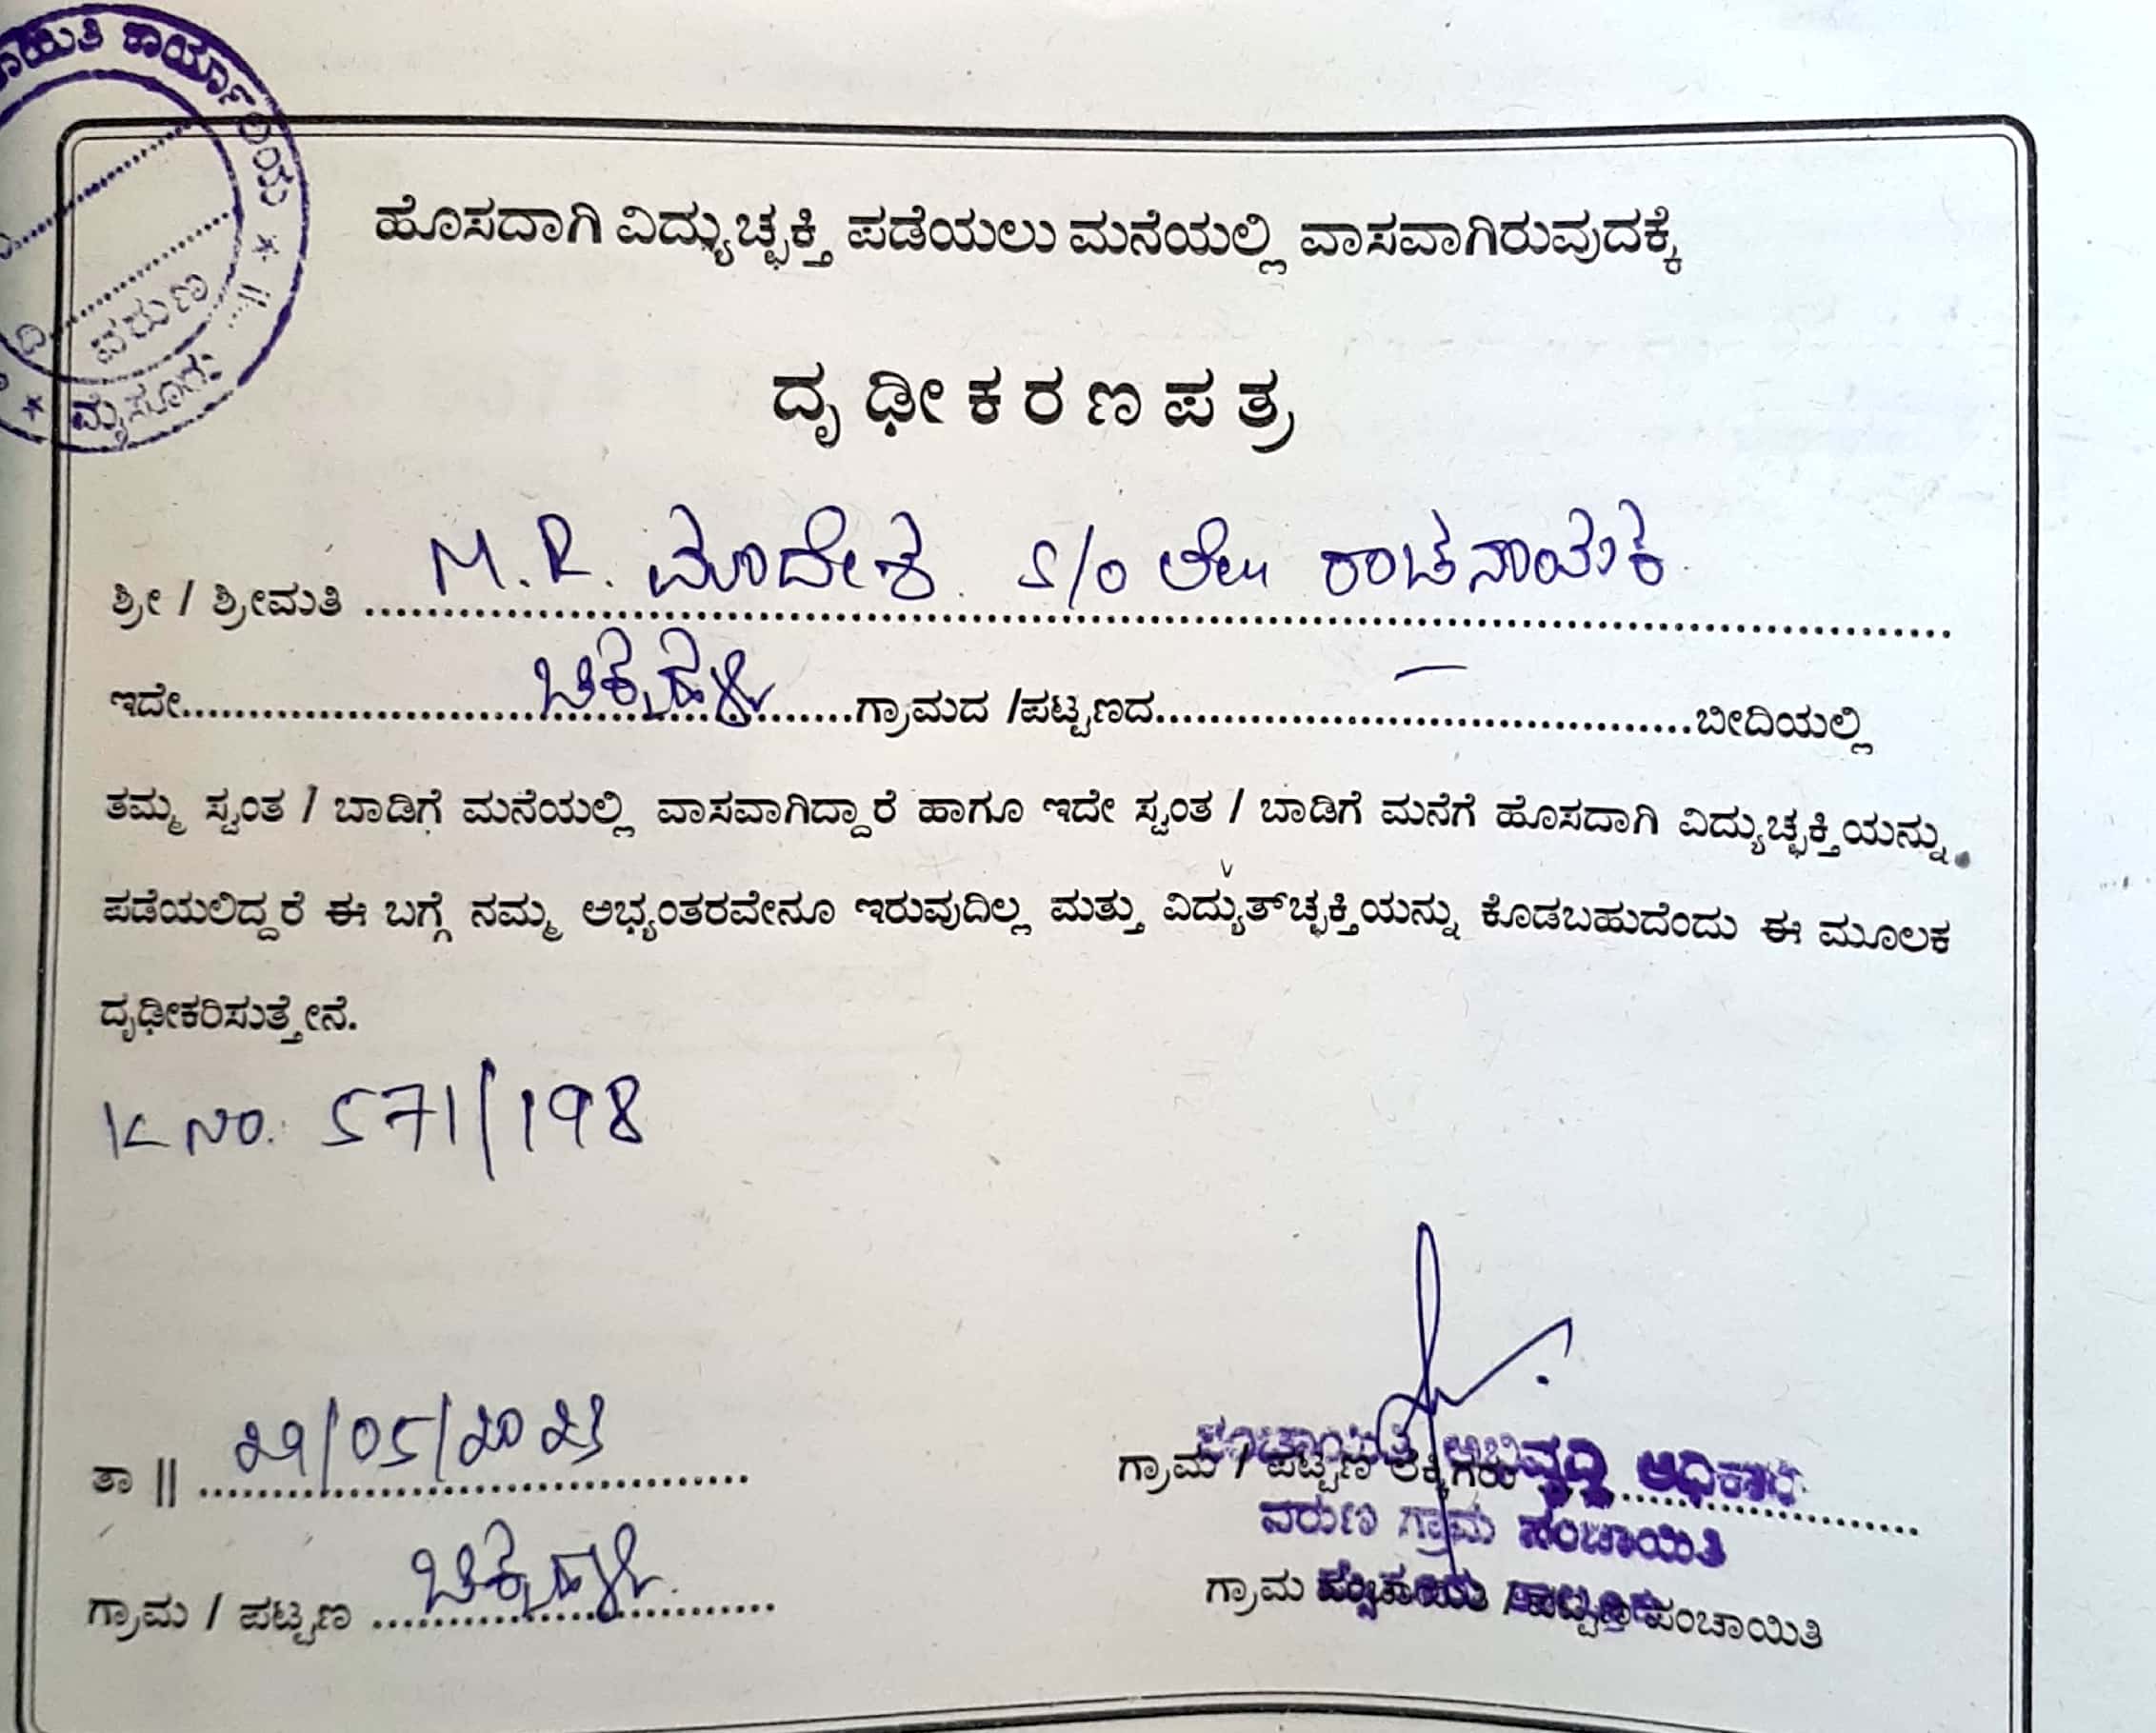 ಕಾರ್ಯಾಲಯ
ವರುಣ
ಮೈಸೂರು
ಹೊಸದಾಗಿ ವಿದ್ಯುಚ್ಛಕ್ತಿ ಪಡೆಯಲು ಮನೆಯಲ್ಲಿ ವಾಸವಾಗಿರುವುದಕ್ಕೆ
ದೃಢೀಕರಣಪತ್ರ
ಶ್ರೀ / ಶ್ರೀಮತಿ M.R. ಮಾದೇಶ S/o ಲೇ|| ರಾಚನಾಯಕ
ಇದೇ ಚಿಕ್ಕಹಳ್ಳಿ ಗ್ರಾಮದ /ಪಟ್ಟಣದ — ಬೀದಿಯಲ್ಲಿ
ತಮ್ಮ ಸ್ವಂತ / ಬಾಡಿಗೆ ಮನೆಯಲ್ಲಿ ವಾಸವಾಗಿದ್ದಾರೆ ಹಾಗೂ ಇದೇ ಸ್ವಂತ / ಬಾಡಿಗೆ ಮನೆಗೆ ಹೊಸದಾಗಿ ವಿದ್ಯುಚ್ಛಕ್ತಿಯನ್ನು
ಪಡೆಯಲಿದ್ದರೆ ಈ ಬಗ್ಗೆ ನಮ್ಮ ಅಭ್ಯಂತರವೇನೂ ಇರುವುದಿಲ್ಲ ಮತ್ತು ವಿದ್ಯುತ್‌ಚ್ಛಕ್ತಿಯನ್ನು ಕೊಡಬಹುದೆಂದು ಈ ಮೂಲಕ
ದೃಢೀಕರಿಸುತ್ತೇನೆ.
K NO. 571/198
ತಾ || 29/05/2023
ಪಂಚಾಯಿತಿ ಅಭಿವೃದ್ಧಿ ಅಧಿಕಾರಿ
ಗ್ರಾಮ / ಪಟ್ಟಣ ಲೆಕ್ಕಿಗರು
ವರುಣ ಗ್ರಾಮ ಪಂಚಾಯಿತಿ
ಗ್ರಾಮ / ಪಟ್ಟಣ ಚಿಕ್ಕಹಳ್ಳಿ
ಗ್ರಾಮ ಪಂಚಾಯಿತಿ / ಪಟ್ಟಣ ಪಂಚಾಯಿತಿ